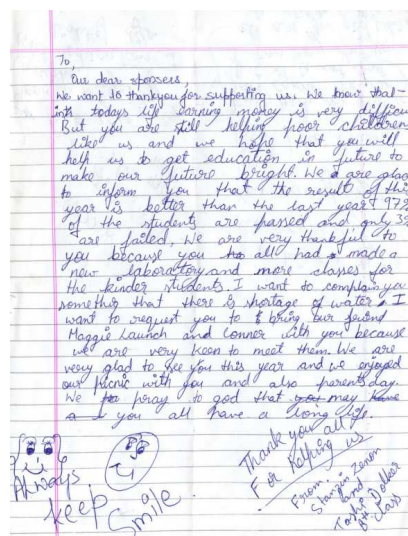 To,
Our dear sponsers,
We want to thankyou for supporting us. We know that
in todays life earning money is very difficu
But you are still helping poor childeren
like us and we hope that you will
help us to get education in future to
make our future bright. We are glad
to inform you that the result of this
year is better than the last year 97%
of the students are passed and only 3%
are failed, We are very thankful to
you because you all had made a
new laboratory and more classes for
the kinder students. I want to complain you
something that there is shortage of water. I
want to request you to bring our friend
Maggie Launch and Conner with you because
we are very keen to meet them. We are
very glad to see you this year and we enjoyed
our picnic with you and also parents day.
We pray to god that you may have
a you all have a long life.
Thank you all
For helping us
Always
keep a
Smile.
From:
Stanzin Zenon
and
Tashi Dolker
8th class